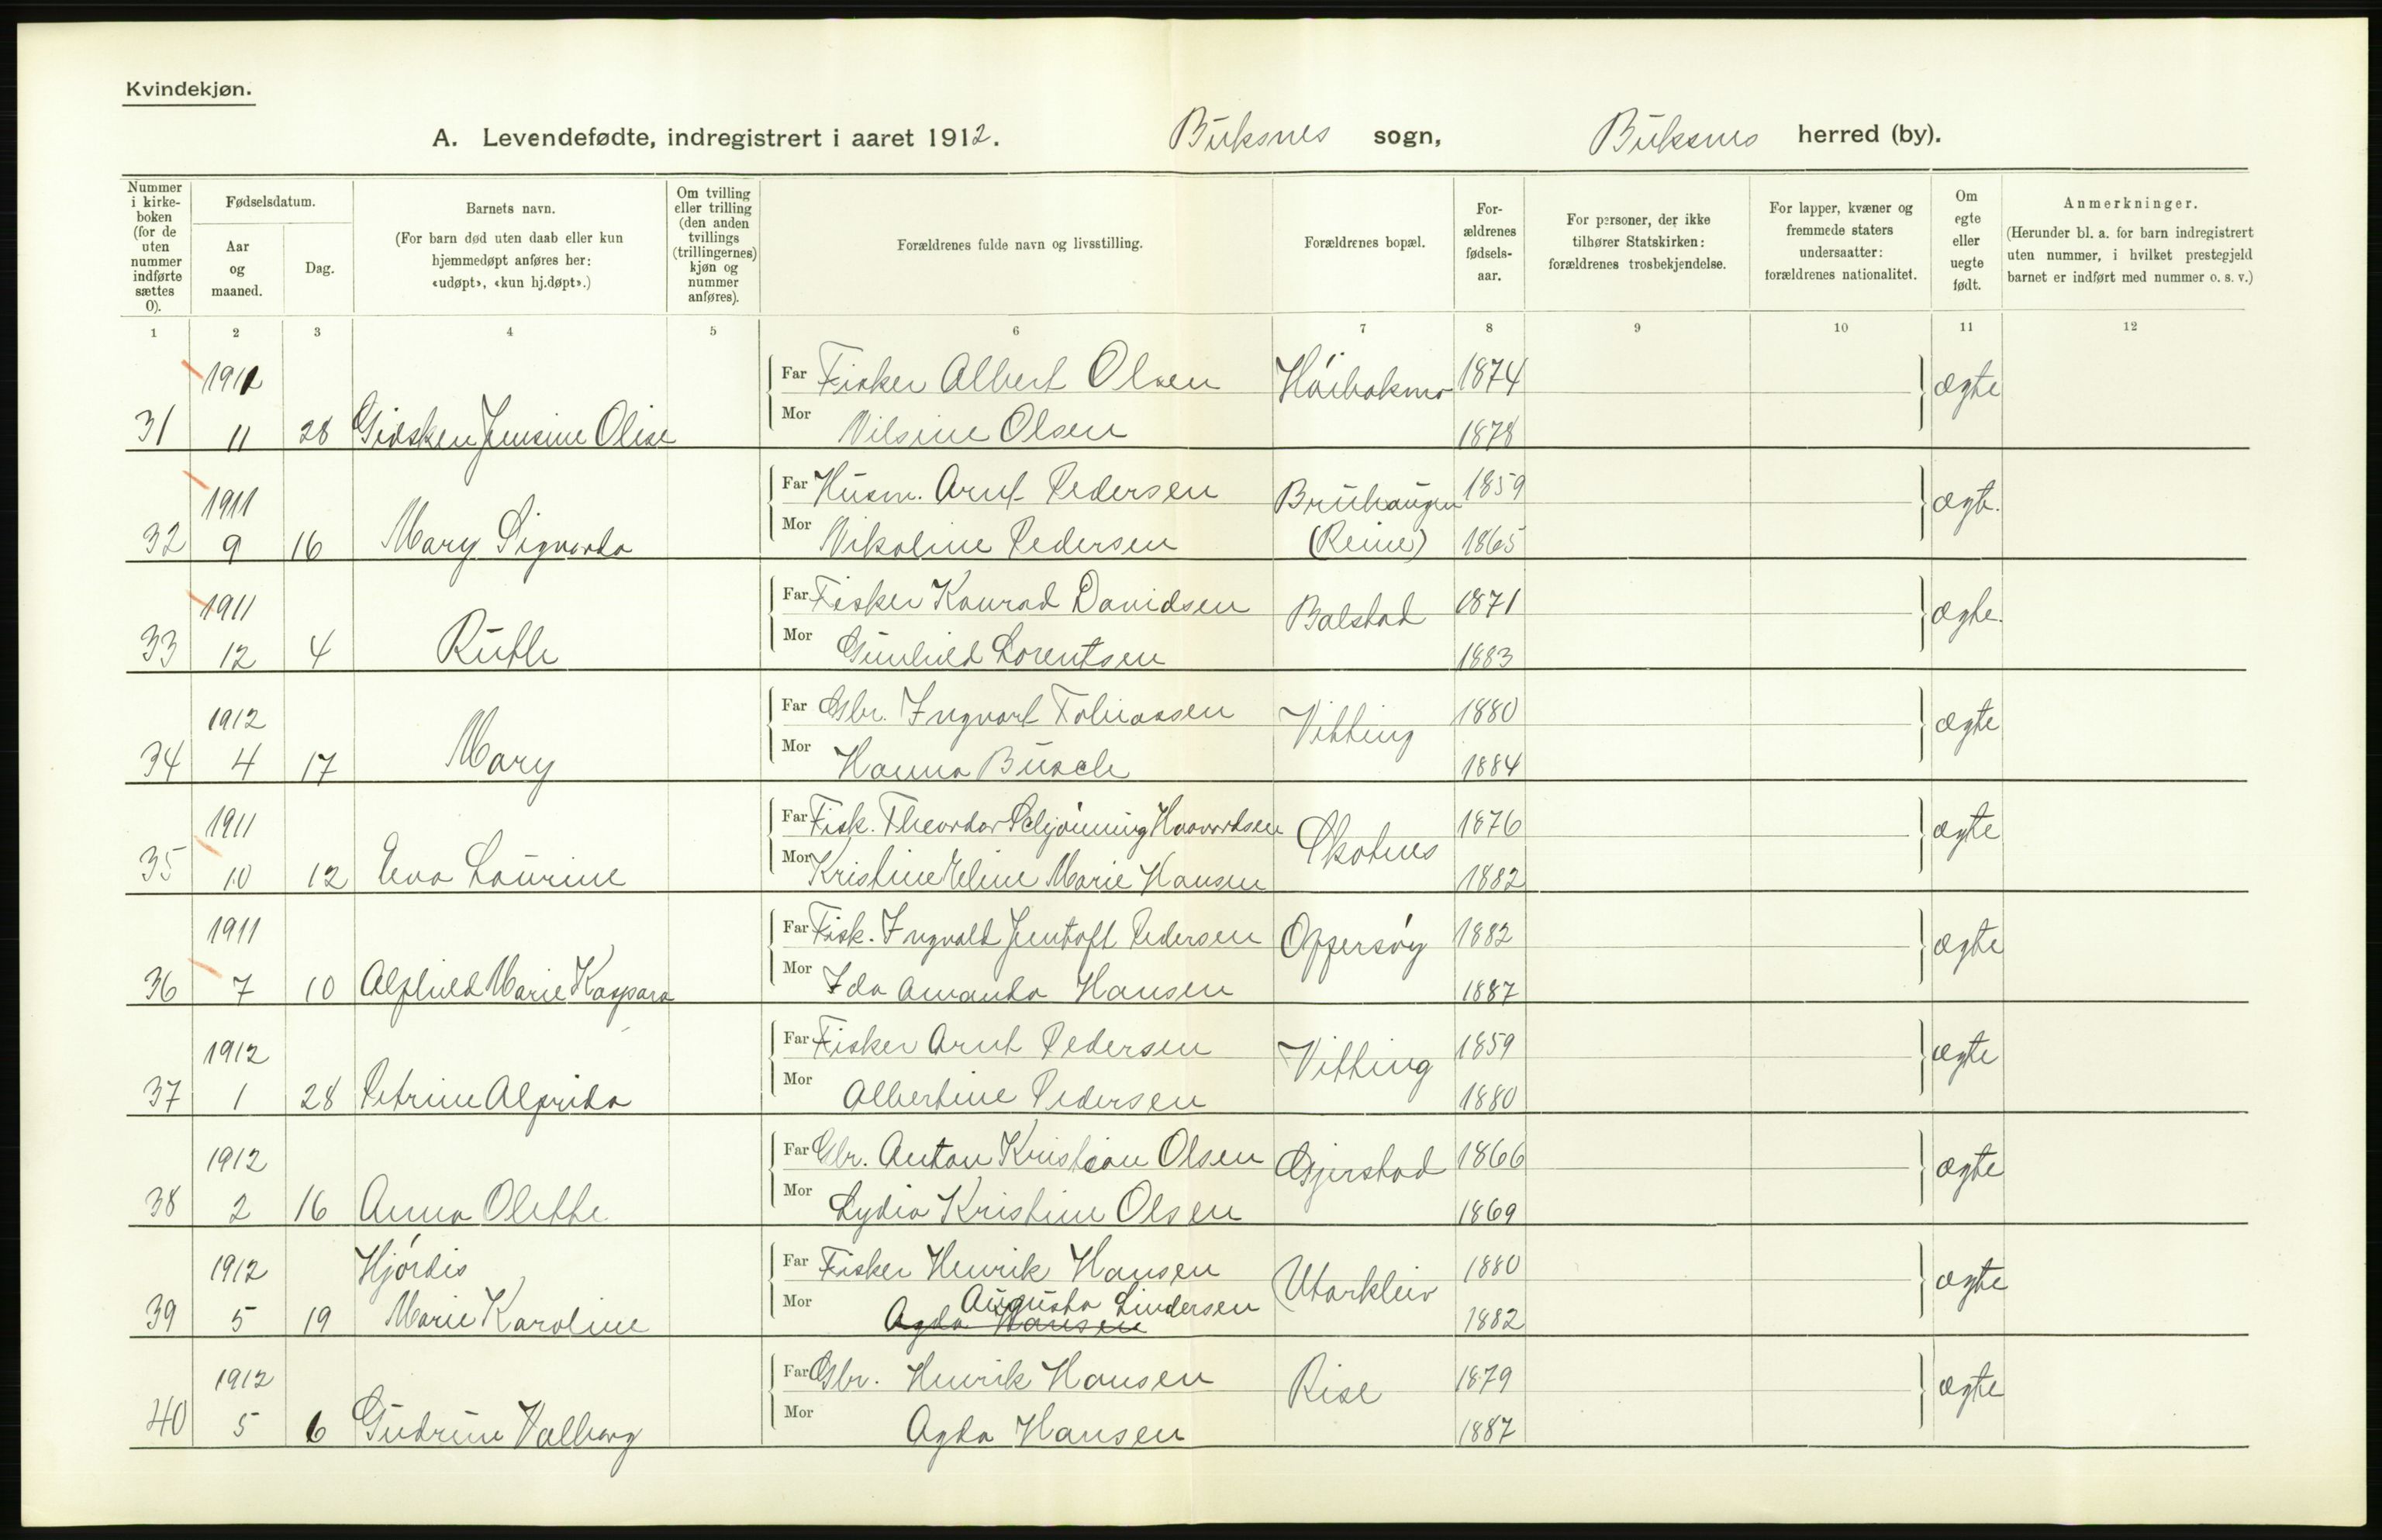 Kvindekjøn.
A. Levendefødte, indregistrert i aaret 1912. Buksnes sogn, Buksnes herred (by).
Nummer i kirke-boken (for de uten nummer indførte sættes 0).
Fødselsdatum.
Aar og maaned.
Dag.
Barnets navn.
(For barn død uten daab eller kun hjemmedøpt anføres her: «udøpt», «kun hj.døpt».)
Om tvilling eller trilling (den anden tvillings (trillingernes) kjøn og nummer anføres).
Forældrenes fulde navn og livsstilling.
Forældrenes bopæl.
For-ældrenes fødsels-aar.
For personer, der ikke tilhører Statskirken: forældrenes trosbekjendelse.
For lapper, kvæner og fremmede staters undersaatter: forældrenes nationalitet.
Om egte eller uegte født.
Anmerkninger.
(Herunder bl. a. for barn indregistrert uten nummer, i hvilket prestegjeld barnet er indført med nummer o. s. v.)
1 2 3 4 5 6 7 8 9 10 11 12
1911 Far Fisker Albert Olsen 1874 ægte
31 11 28 Gidsken Jensine Olise Mor Nilsine Olsen 1878
1911 Far Husm. Arnt Pedersen Bruhaugen 1859 ægte.
32 9 16 Mary Sigvarda Mor Nikoline Pedersen (Reine) 1865
1911 Far Fisker Konrad Davidsen Balstad 1871 ægte.
33 12 4 Ruth Mor Gunhild Lorentsen 1883
1912 Far Gbr. Ingvart Tobiassen Vitting 1880 ægte
34 4 17 Mary Mor Hanna Busch 1884
1911 Far Fisk. Theordor Schjønning Haavardsen Skotnes 1876 ægte
35 10 12 Eva Laurine Mor Kristine Eline Marie Hansen 1882
1911 Far Fisk. Ingvald Jentoft Pedersen Offersøy 1882 ægte
36 7 10 Alfhild Marie Kaspara Mor Ida Amanda Hansen 1887
1912 Far Fisker Arnt Pedersen Vitting 1859 ægte
37 1 28 Petrine Alfrida Mor Albertine Pedersen 1880
1912 Far Gbr. Anton Kristian Olsen Gjerstad 1866 ægte
38 2 16 Anna Olette Mor Lydia Kristine Olsen 1869
1912 Hjørdis Far Fisker Henrik Hansen Utakleiv 1880 ægte
39 5 19 Marie Karoline Mor Augusta Lindersen 1882
Agda Hansen
1912 Far Gbr. Henrik Hansen Rise 1879 ægte
40 5 6 Gudrun Valborg Mor Agda Hansen 1887